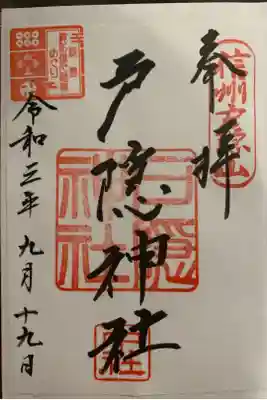 奉拝
信州戸隠山
戸隠神社
戸隠
神社
令和三年 九月 十九日